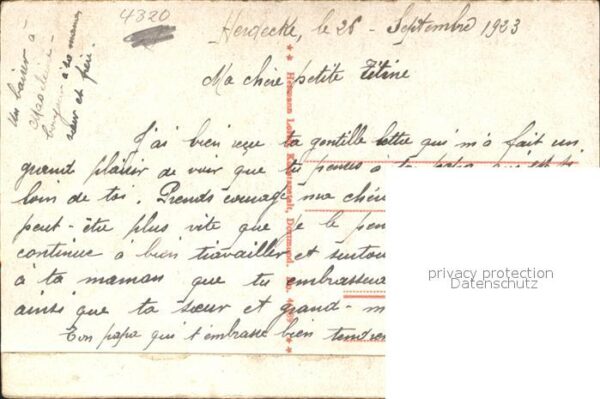 4320
Herdecke, le 26 - Septembre 1923
un baiser à
Madeleine
bonjour à ta maman
sœur et frère.
Ma chère petite Titine
J'ai bien reçu ta gentille lettre qui m'a fait un
grand plaisir de voir que tu penses à ton papa qui est si
loin de toi. Prends courage ma chéri
peut-être plus vite que je le pen
continue à bien travailler et surtou
à ta maman que tu embrasseras
ainsi que ta sœur et grand-m
Ton papa qui t'embrasse bien tendre
Hermann Kunstanstalt, Dortmund.
privacy protection
Datenschutz